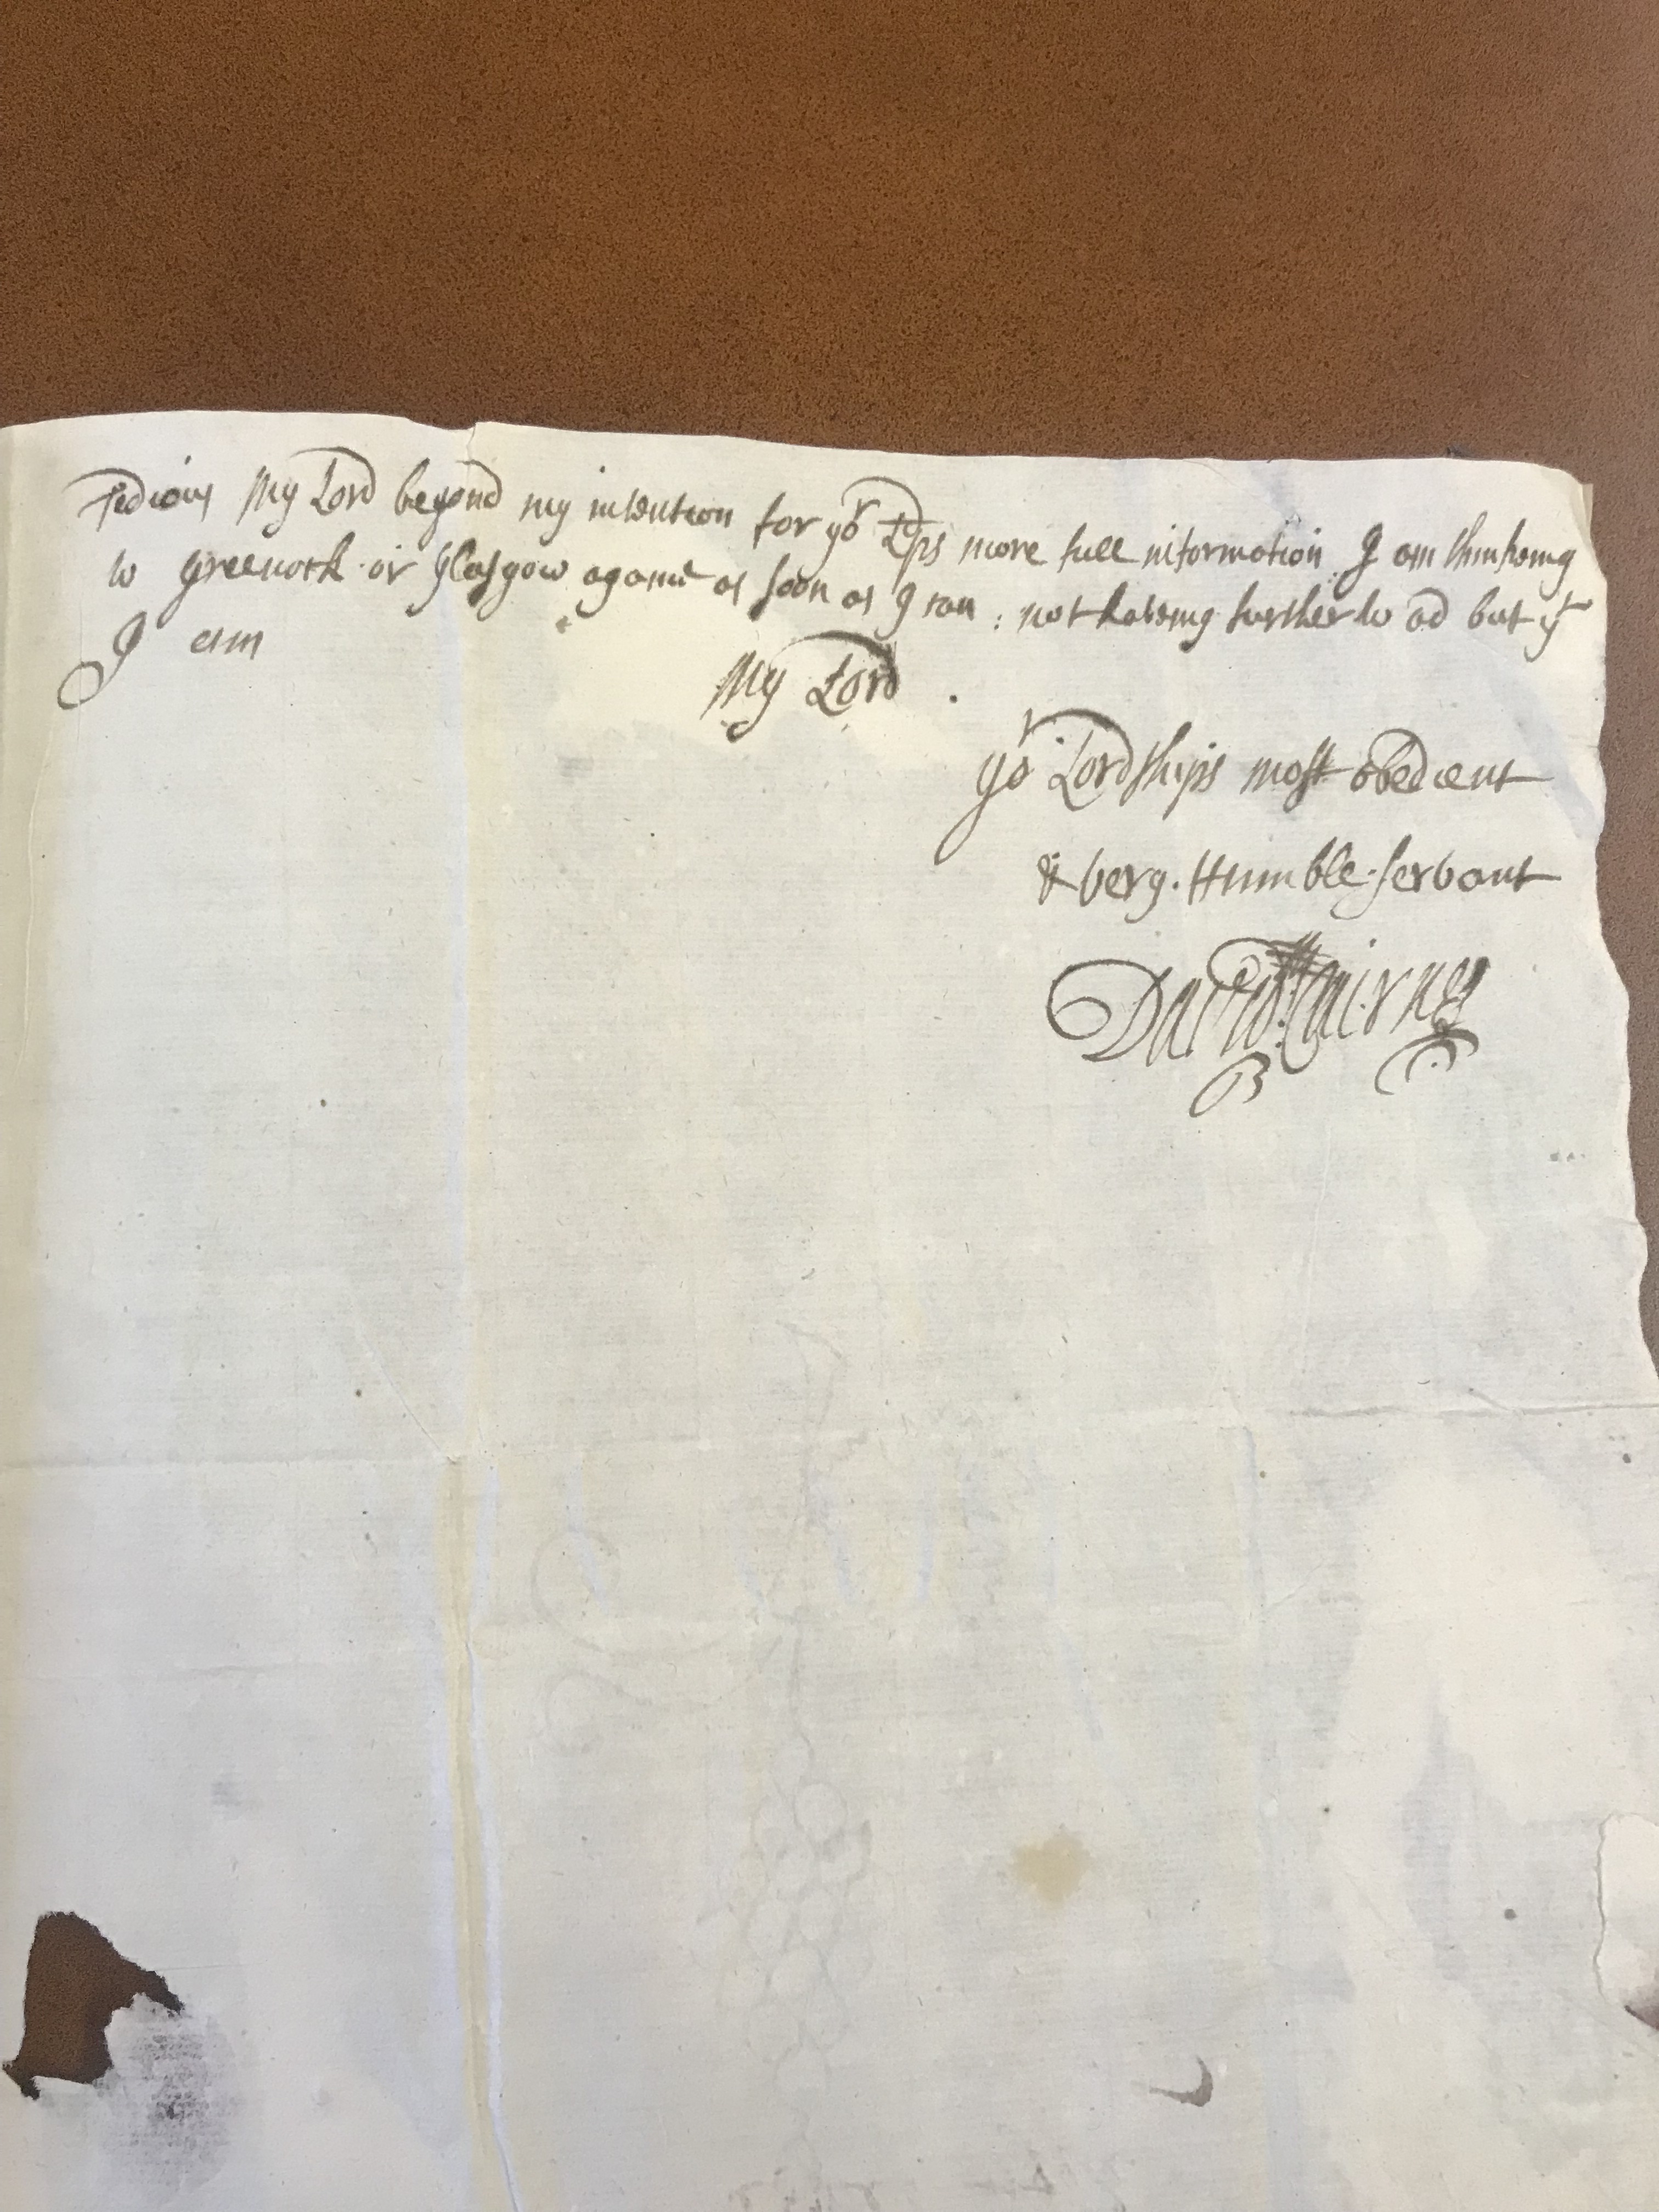 Tedious My Lord beyond my intention for yor Lps more full information I am thinking
to Greenock or Glasgow againe as soon as I can : not having further to ad but yt
I am
My Lord .
yor Lordships most obedient
& very Humble servant
David Cairnes